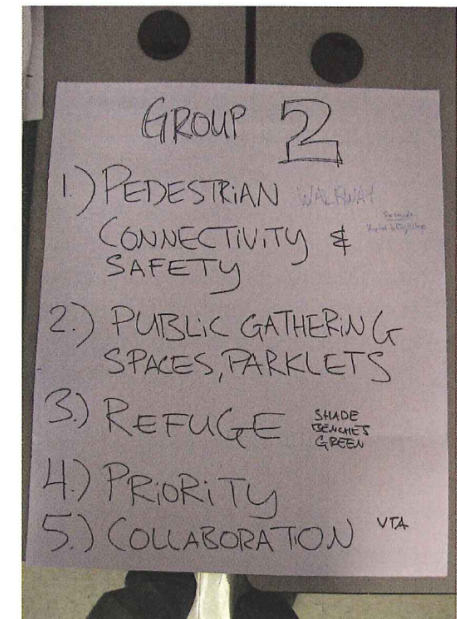 GROUP 2
1.) PEDESTRIAN WALKWAY
CONNECTIVITY &
SAFETY
2.) PUBLIC GATHERING
SPACES, PARKLETS
3.) REFUGE SHADE
BENCHES
GREEN
4.) PRIORITY
5.) COLLABORATION VTA